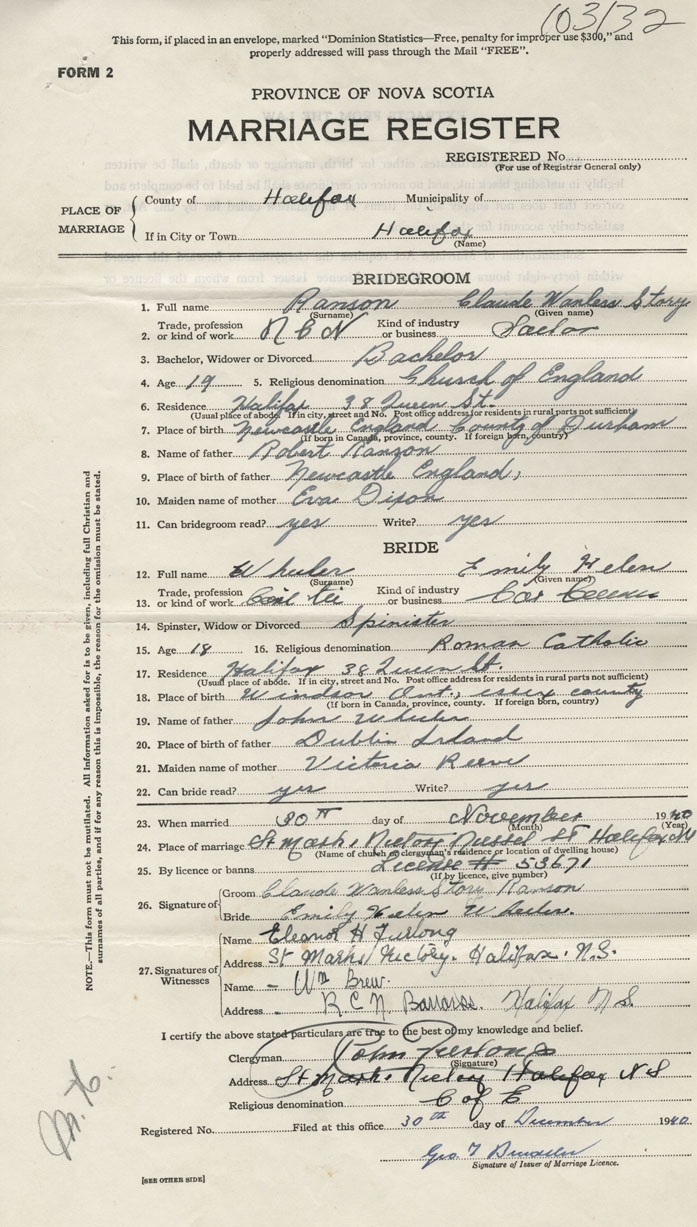 103/32
This form, if placed in an envelope, marked "Dominion Statistics—Free, penalty for improper use $300," and
properly addressed will pass through the Mail "FREE".
FORM 2
PROVINCE OF NOVA SCOTIA
MARRIAGE REGISTER
REGISTERED No.
(For use of Registrar General only)
PLACE OF MARRIAGE
County of Halifax Municipality of
If in City or Town Halifax
(Name)
BRIDEGROOM
1. Full name Ranson Claude Wanless Story
(Surname) (Given name)
2. Trade, profession or kind of work Kind of industry or business
3. Bachelor, Widower or Divorced Bachelor
4. Age 19 5. Religious denomination Church of England
6. Residence Halifax 38 Queen St.
(Usual place of abode. If in city, street and No. Post office address for residents in rural parts not sufficient)
7. Place of birth Newcastle England County of Durham
(If born in Canada, province, county. If foreign born, country)
8. Name of father Robert Ranson
9. Place of birth of father Newcastle England,
10. Maiden name of mother Eva Dixon
11. Can bridegroom read? yes Write? yes
BRIDE
12. Full name Wheeler Emily Helen
(Surname) (Given name)
13. Trade, profession or kind of work Kind of industry or business
14. Spinster, Widow or Divorced Spinister
15. Age 18 16. Religious denomination Roman Catholic
17. Residence Halifax 38 Queen St.
(Usual place of abode. If in city, street and No. Post office address for residents in rural parts not sufficient)
18. Place of birth Windsor Ont., essex county
(If born in Canada, province, county. If foreign born, country)
19. Name of father John Wheeler
20. Place of birth of father Dublin Irland
21. Maiden name of mother Victoria Reeve
22. Can bride read? yes Write? yes
23. When married 30TH day of November 1940
(Month) (Year)
24. Place of marriage St Marks Rectory Russell St Halifax NS
(Name of church or clergyman's residence or location of dwelling house)
25. By licence or banns License # 53671
(If by licence, give number)
26. Signature of
Groom Claude Wanless Story Ranson
Bride Emily Helen Wheeler.
27. Signatures of Witnesses
Name Eleanor H Furlong
Address St Marks Rectory. Halifax. N.S.
Name Wm Brew.
Address R.C.N. Halifax N S.
I certify the above stated particulars are true to the best of my knowledge and belief.
Clergyman John Furlong
(Signature)
Address St Marks Rectory Halifax N S
Religious denomination C of E
Registered No. Filed at this office 30th day of December 1940.
Signature of Issuer of Marriage Licence.
[SEE OTHER SIDE]
NOTE.—This form must not be mutilated. All information asked for is to be given, including full Christian and
surnames of all parties, and if for any reason this is impossible, the reason for the omission must be stated.